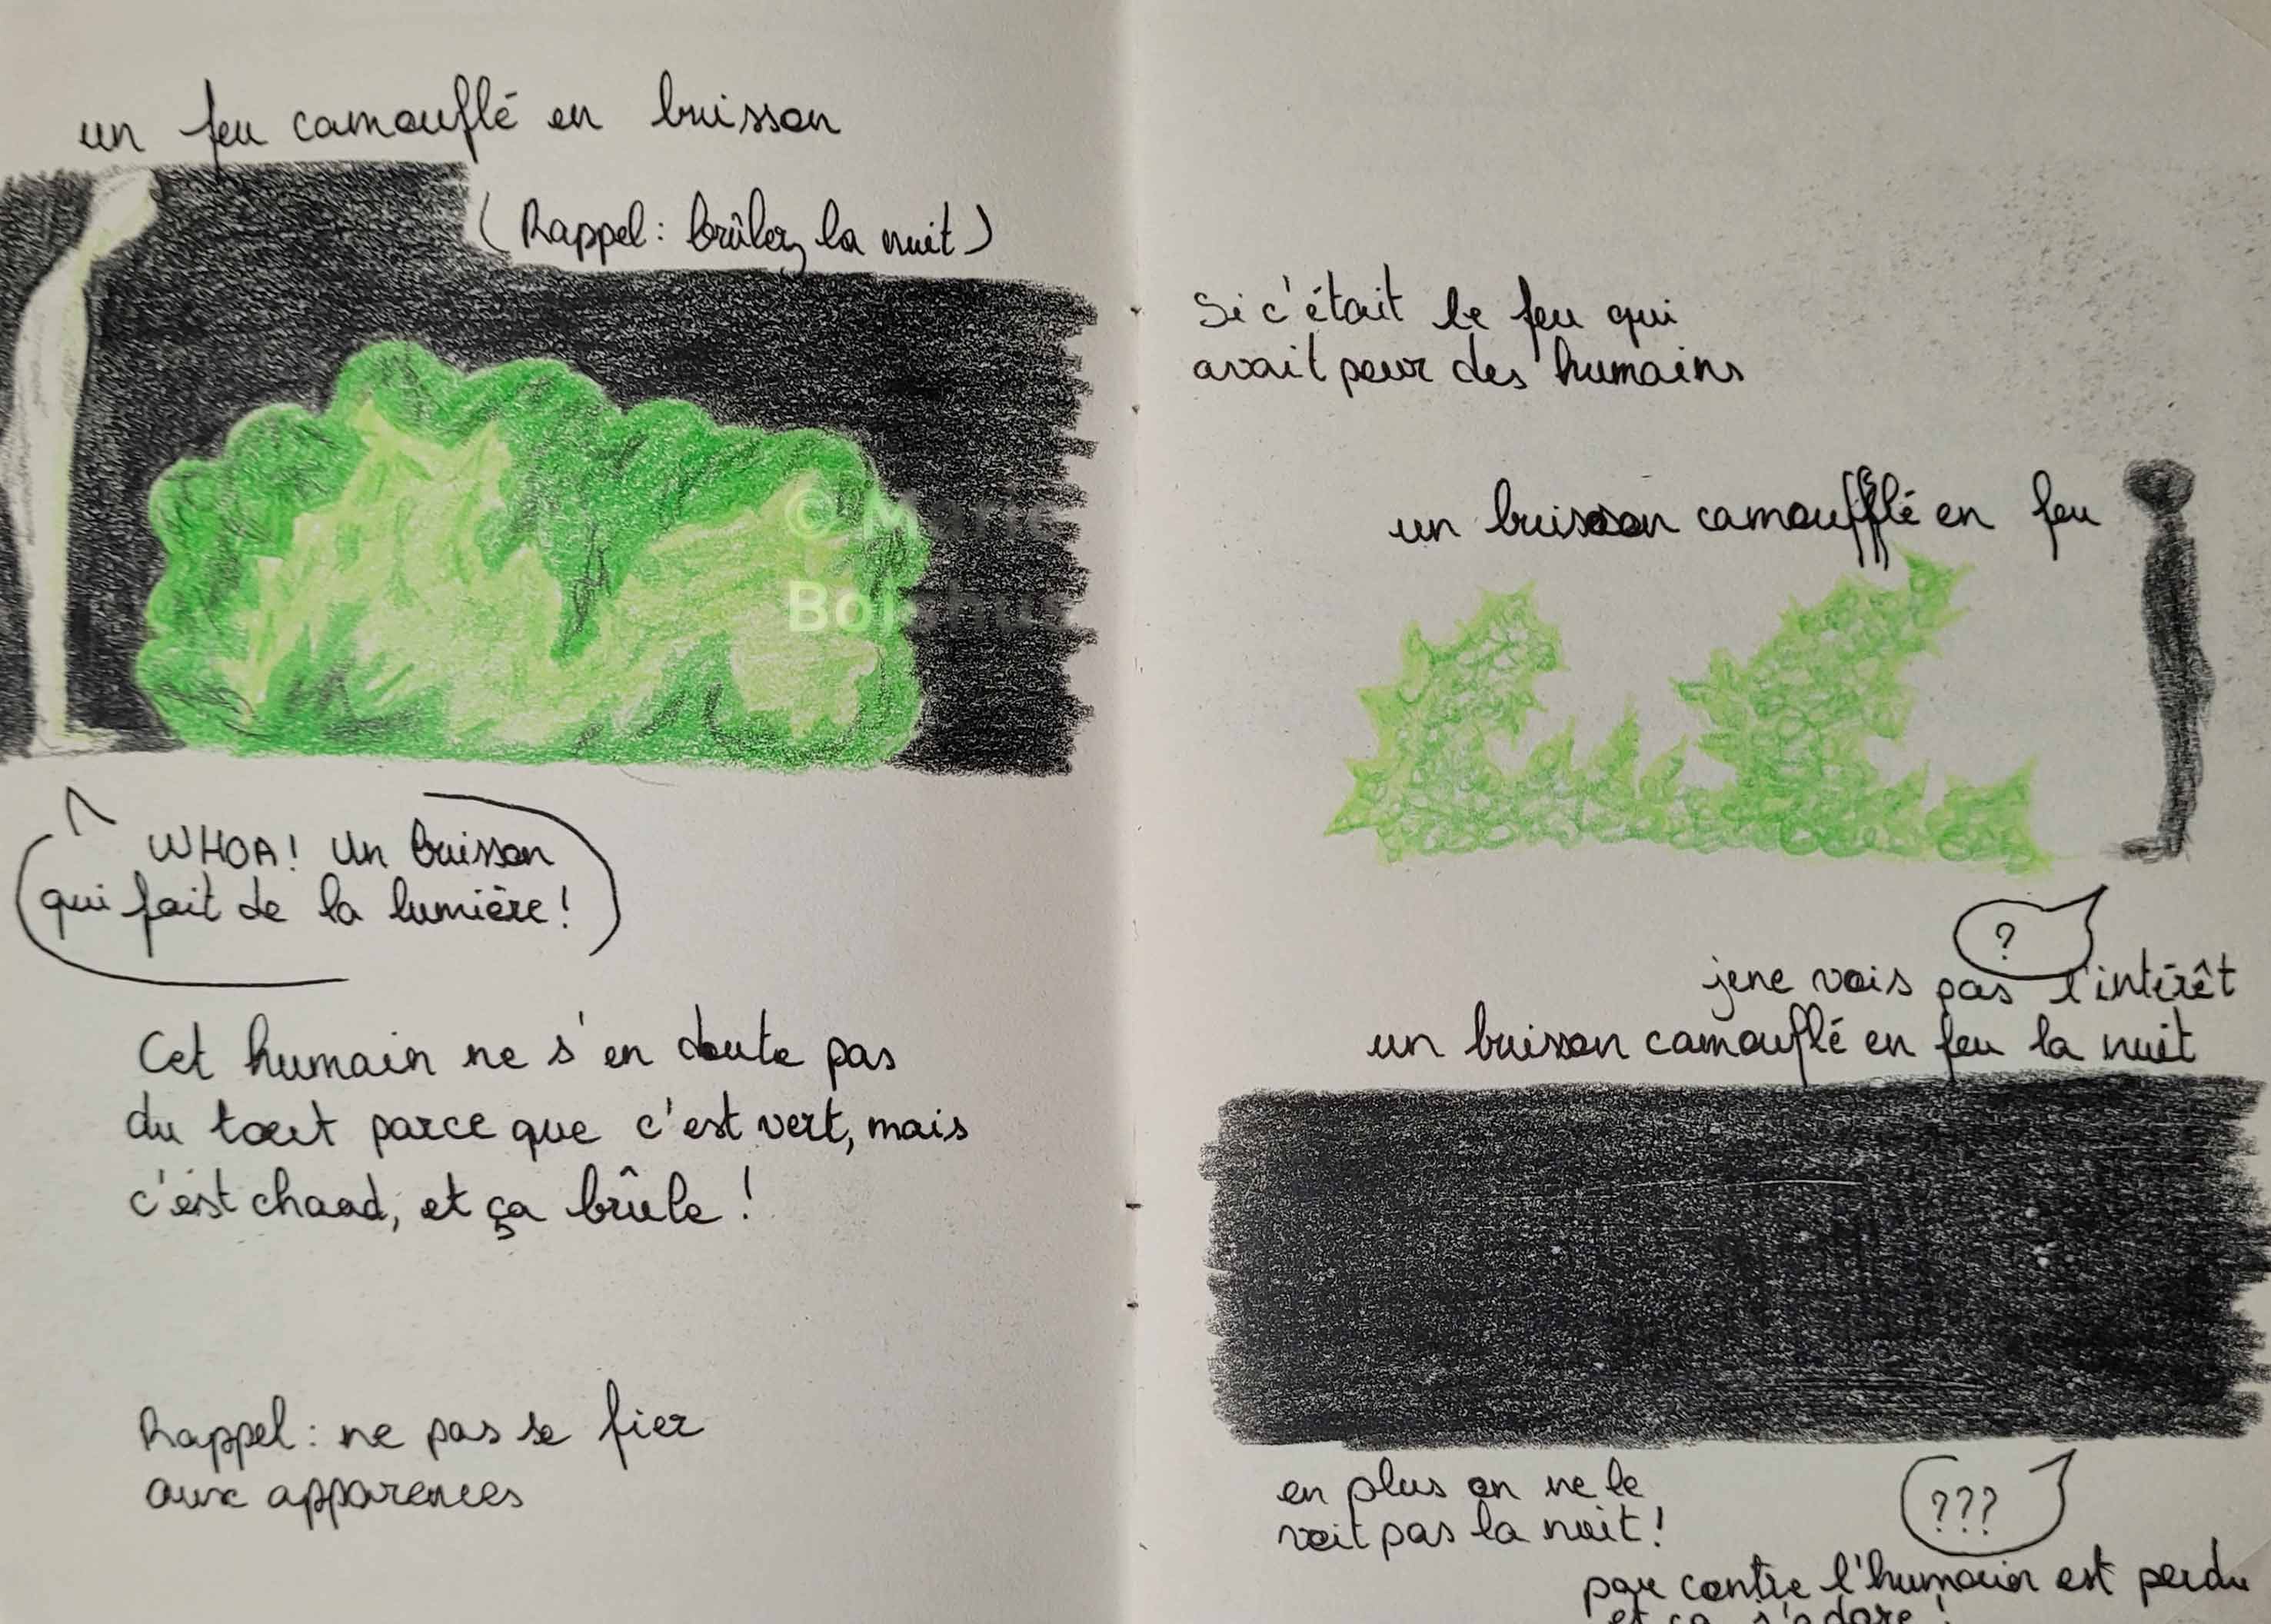 un feu camouflé en buisson
(Rappel: brûler la nuit)
© Marie
Boishus
WHOA! Un buisson
qui fait de la lumière!
Cet humain ne s'en doute pas
du tout parce que c'est vert, mais
c'est chaud, et ça brûle!
Rappel: ne pas se fier
aux apparences
Si c'était le feu qui
avait peur des humains
un buisson camoufflé en feu
?
je ne vois pas l'intérêt
un buisson camouflé en feu la nuit
en plus on ne le
voit pas la nuit!
???
par contre l'humain est perdu
et ça j'adore!